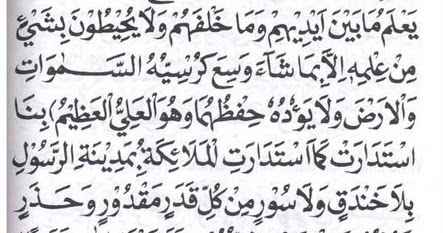 يَعْلَمُ مَا بَيْنَ اَيْدِيْهِمْ وَمَا خَلْفَهُمْ وَلَا يُحِيْطُوْنَ بِشَيْءٍ
مِنْ عِلْمِهِ اِلَّا بِمَا شَآءَ وَسِعَ كُرْسِيُّهُ السَّمٰوَاتِ
وَالْاَرْضَ وَلَا يَؤُدُهُ حِفْظُهُمَا وَهُوَ الْعَلِيُّ الْعَظِيْمُ) بِنَا
اسْتَدَارَتْ كَمَا اسْتَدَارَتِ الْمَلَائِكَةُ بِمَدِيْنَةِ الرَّسُوْلِ
بِلَا خَنْدَقٍ وَلَا سُوْرٍ مِنْ كُلِّ قَدَرٍ مَقْدُوْرٍ وَحَذَرٍ